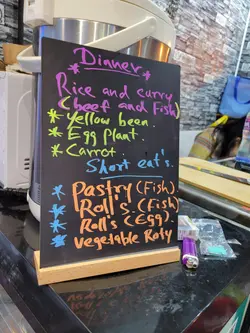 Dinner
Rice and curry
(beef and Fish)
* Yellow been.
* Egg Plant.
* Carrot.
Short eat's.
* Pastry (Fish)
* Roll's. (Fish)
* Roll's (Egg).
* vegetable Roty